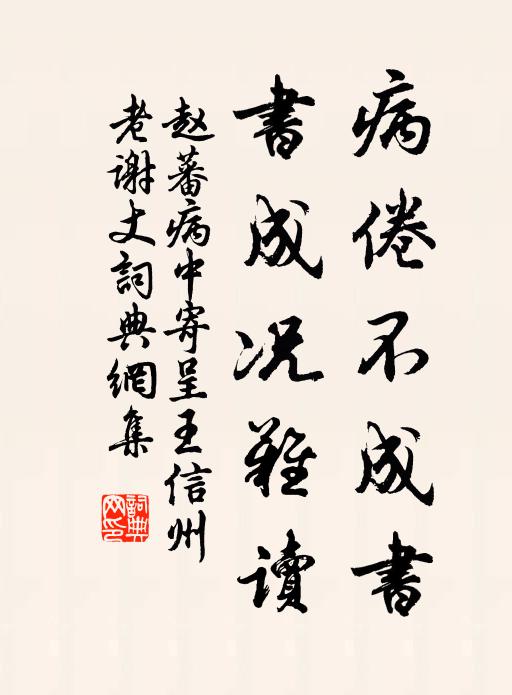 病倦不成書
書成况難讀
赵蕃病中寄呈王信州
老謝丈詞典網集
詞典
网印